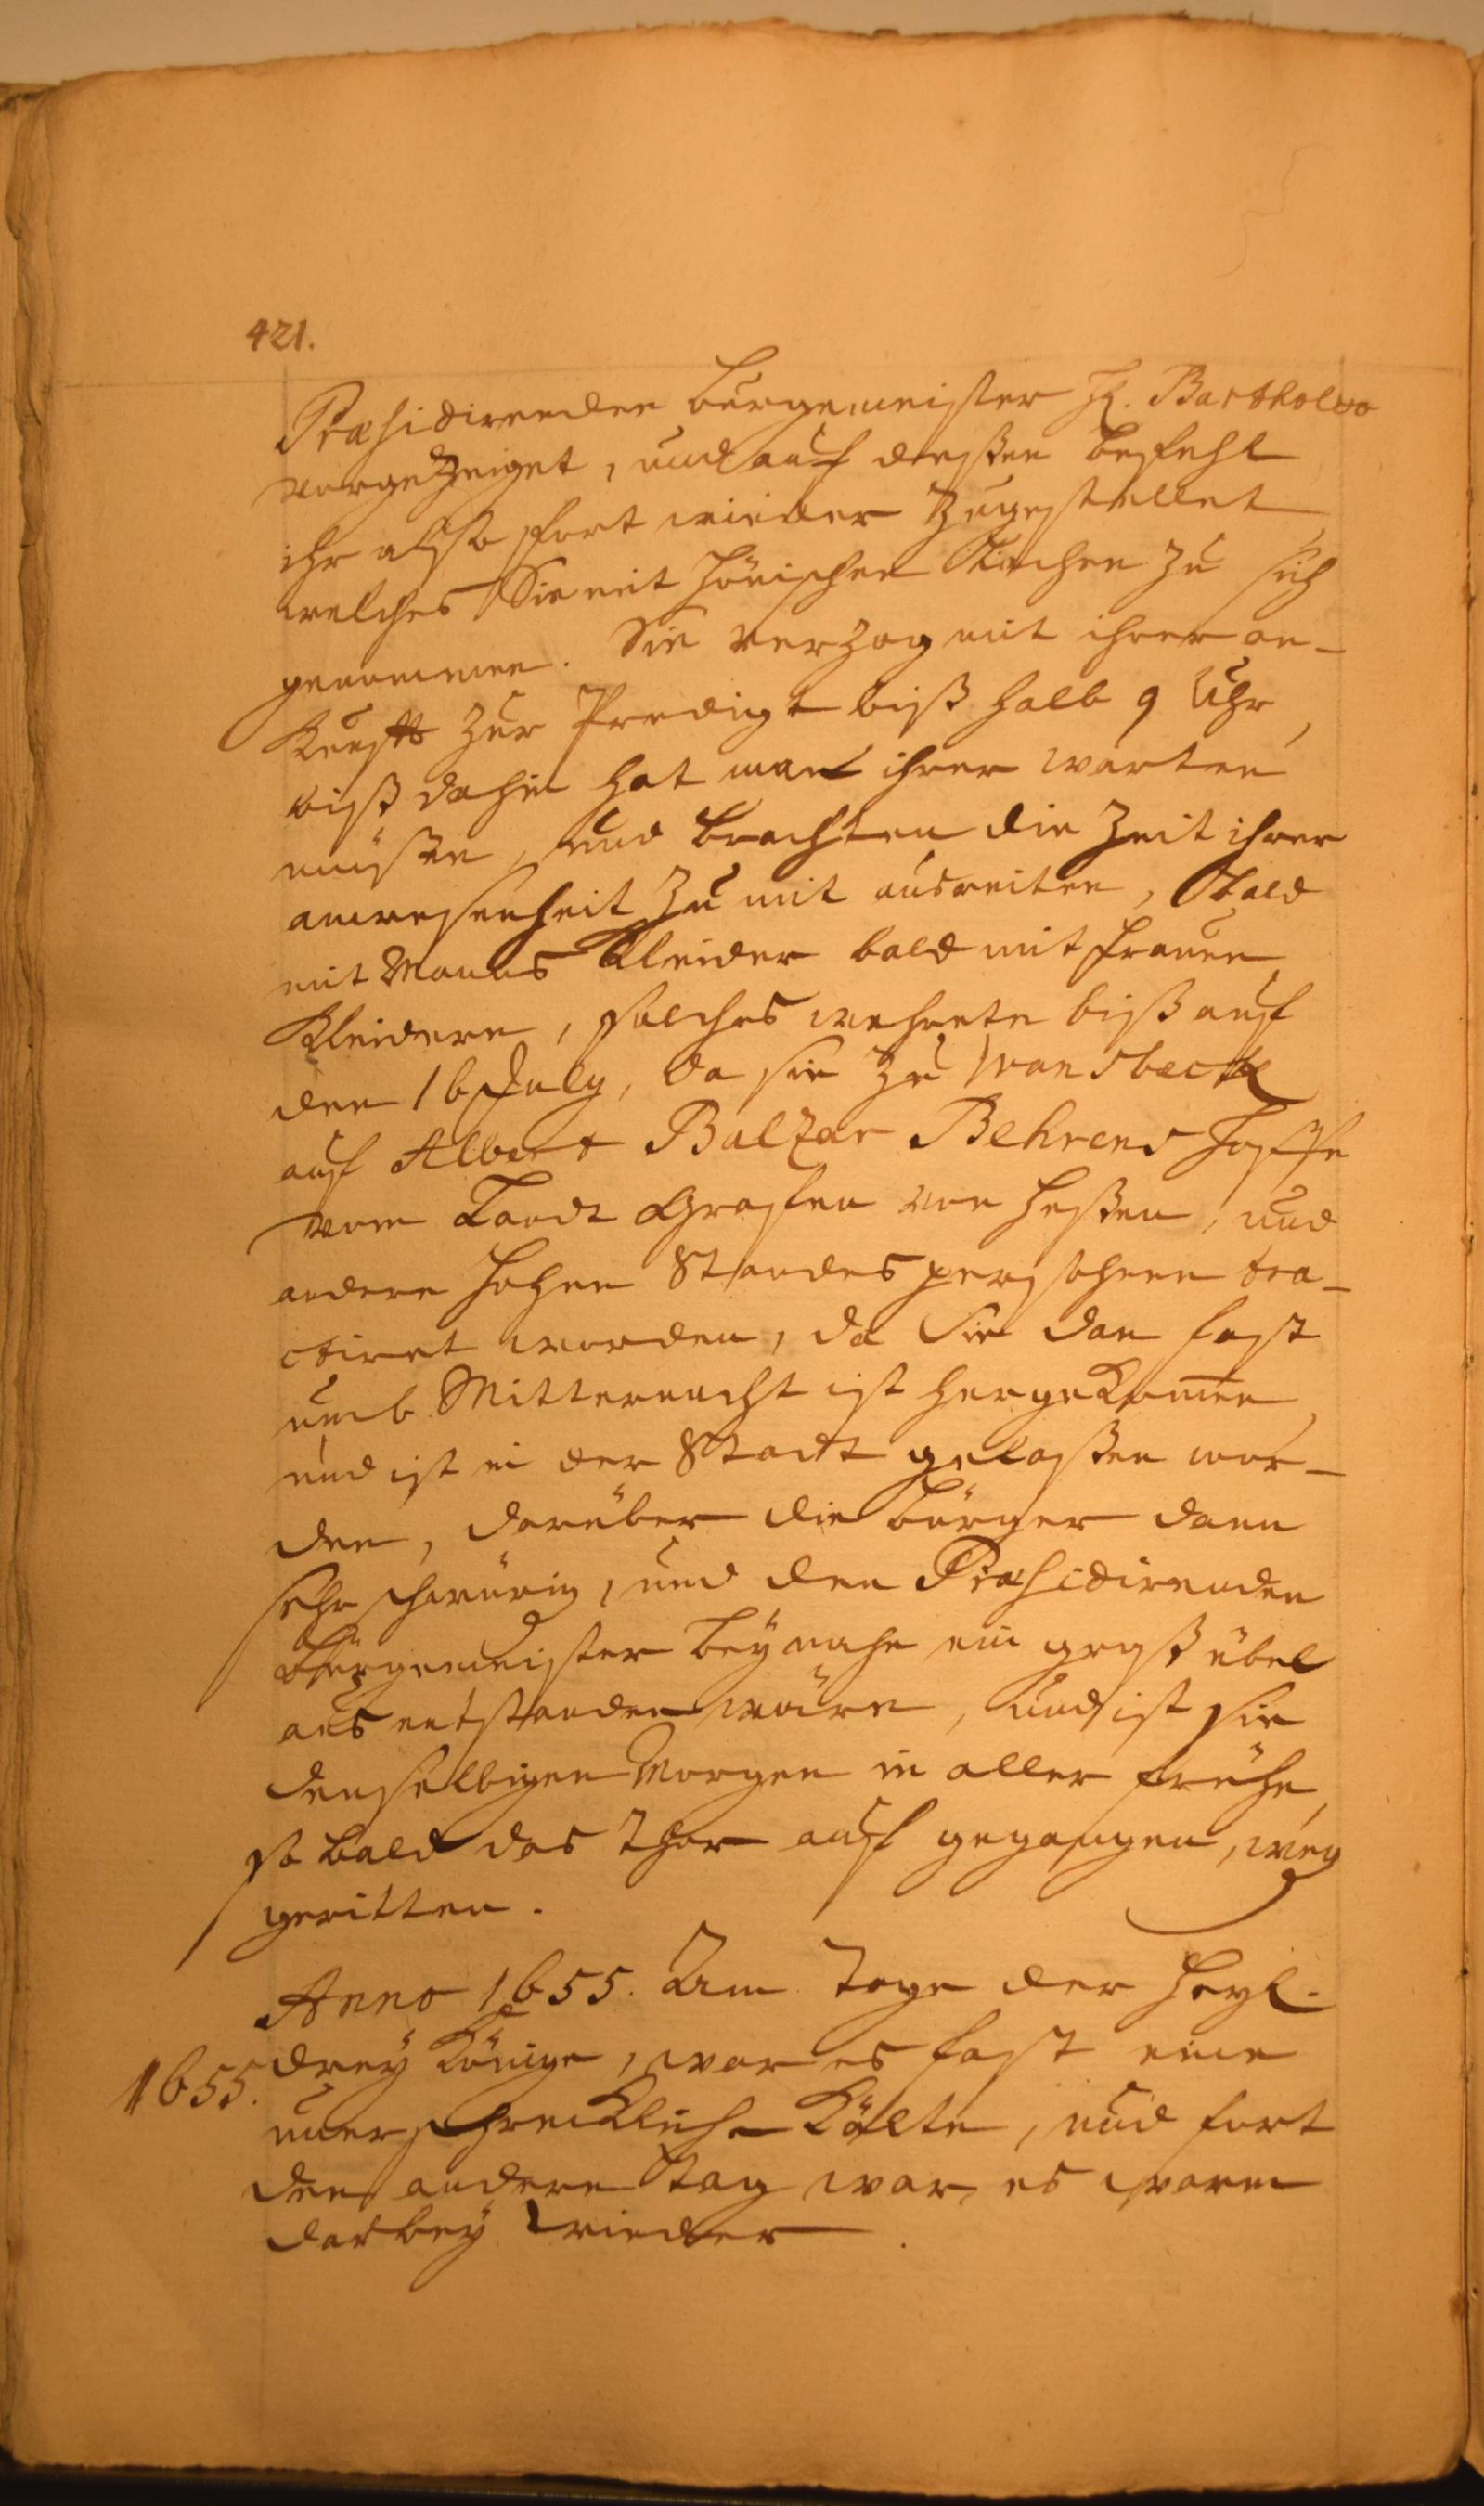 421.
Præsidirenden Burgemeister H. Bartholdo
vorgezeiget, und auf deßen Befehl
ihr also fort wieder zugestellet
welches Sie mit hönischen Lachen zu sich
genommen. Sie verzog mit ihrer an-
kunfft zur Predigt biß halb 9 Uhr,
biß dahin hat man ihrer warten
müßen, und brachten die Zeit ihrer
anwesenheit zu mit ausreiten, bald
mit Manns Kleider bald mit frauen
Kleidern, solches wehrete biß auf
den 16 July, da sie zu Wansbeck
auf Albert Balzar Behrens Hoffe
vom Landt Grafen von Heßen, und
andern hohen Standes persohnen tra-
ctiret worden, da Sie dan fast
umb Mitternacht ist hergekom̅en
und ist in der Stadt gelaßen wor-
den, darüber die Bürger dann
sehr schwürig, und den Præsidirenden
Bürgemeister beynahe ein groß übel
aus entstanden wäre, und ist sie
denselbigen Morgen in aller frühe,
so bald das Thor auf gegangen, weg
geritten.
Anno 1655. Am Tage der Heyl.
1655. drey Könige, war es fast eine
unerschrecklich Kälte, und fort
den andern Tag war es warm
darbey wieder.